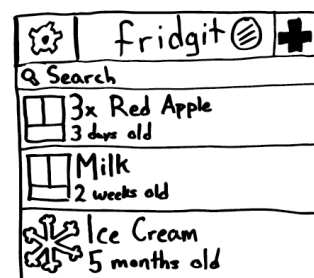 fridgit
Search
3x Red Apple
3 days old
Milk
2 weeks old
Ice Cream
5 months old